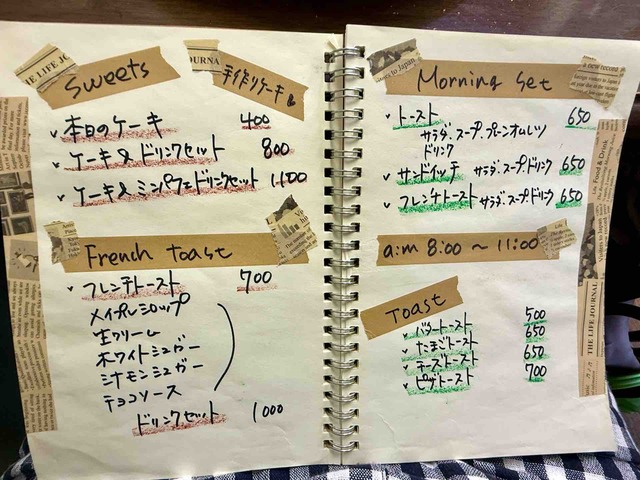 THE LIFE JOURNAL
Sweets
手作りケーキ
本日のケーキ 400
ケーキ&ドリンクセット 800
ケーキ&ミニパフェドリンクセット 1100
French toast
フレンチトースト 700
メイプルシロップ
生クリーム
ホワイトシュガー
シナモンシュガー
チョコソース
ドリンクセット 1000
Morning Set
トースト 650
サラダ、スープ、プレーンオムレツ
ドリンク
サンドイッチ サラダ、スープ、ドリンク 650
フレンチトースト サラダ、スープ、ドリンク 650
a:m 8:00 ~ 11:00
Toast
バタートースト 500
たまごトースト 650
チーズトースト 650
ピザトースト 700
THE LIFE JOURNAL